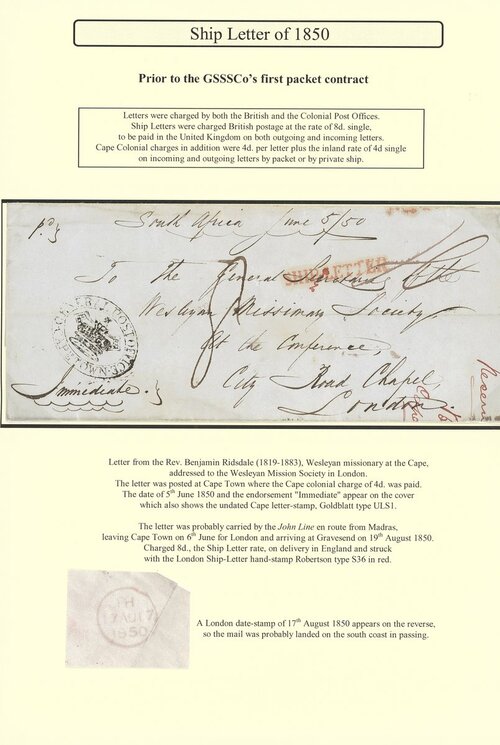 Ship Letter of 1850
Prior to the GSSSCo's first packet contract
Letters were charged by both the British and the Colonial Post Offices.
Ship Letters were charged British postage at the rate of 8d. single,
to be paid in the United Kingdom on both outgoing and incoming letters.
Cape Colonial charges in addition were 4d. per letter plus the inland rate of 4d single
on incoming and outgoing letters by packet or by private ship.
pd} South Africa June 5/50
SHIP LETTER
To the General Secretaries of the
Wesleyan Missionary Society
At the Conference,
City Road Chapel,
London.
8
GENERAL POST OFFICE
CAPE TOWN
Immediate.}
Letter from the Rev. Benjamin Ridsdale (1819-1883), Wesleyan missionary at the Cape,
addressed to the Wesleyan Mission Society in London.
The letter was posted at Cape Town where the Cape colonial charge of 4d. was paid.
The date of 5th June 1850 and the endorsement "Immediate" appear on the cover
which also shows the undated Cape letter-stamp, Goldblatt type ULS1.
The letter was probably carried by the John Line en route from Madras,
leaving Cape Town on 6th June for London and arriving at Gravesend on 19th August 1850.
Charged 8d., the Ship Letter rate, on delivery in England and struck
with the London Ship-Letter hand-stamp Robertson type S36 in red.
PH
17 AU 17
1850
A London date-stamp of 17th August 1850 appears on the reverse,
so the mail was probably landed on the south coast in passing.